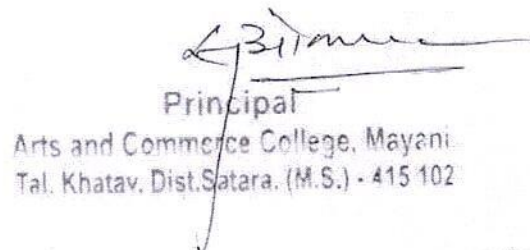 Principal
Arts and Commerce College, Mayani
Tal. Khatav, Dist.Satara. (M.S.) - 415 102